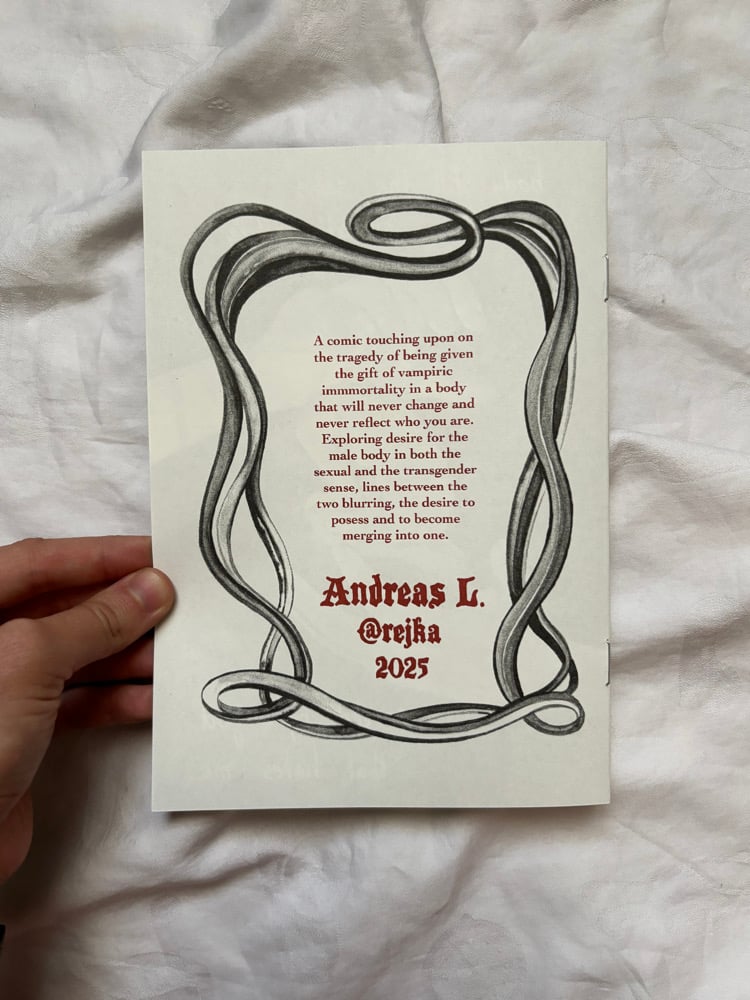 A comic touching upon on
the tragedy of being given
the gift of vampiric
immmortality in a body
that will never change and
never reflect who you are.
Exploring desire for the
male body in both the
sexual and the transgender
sense, lines between the
two blurring, the desire to
posess and to become
merging into one.
Andreas L.
@rejka
2025